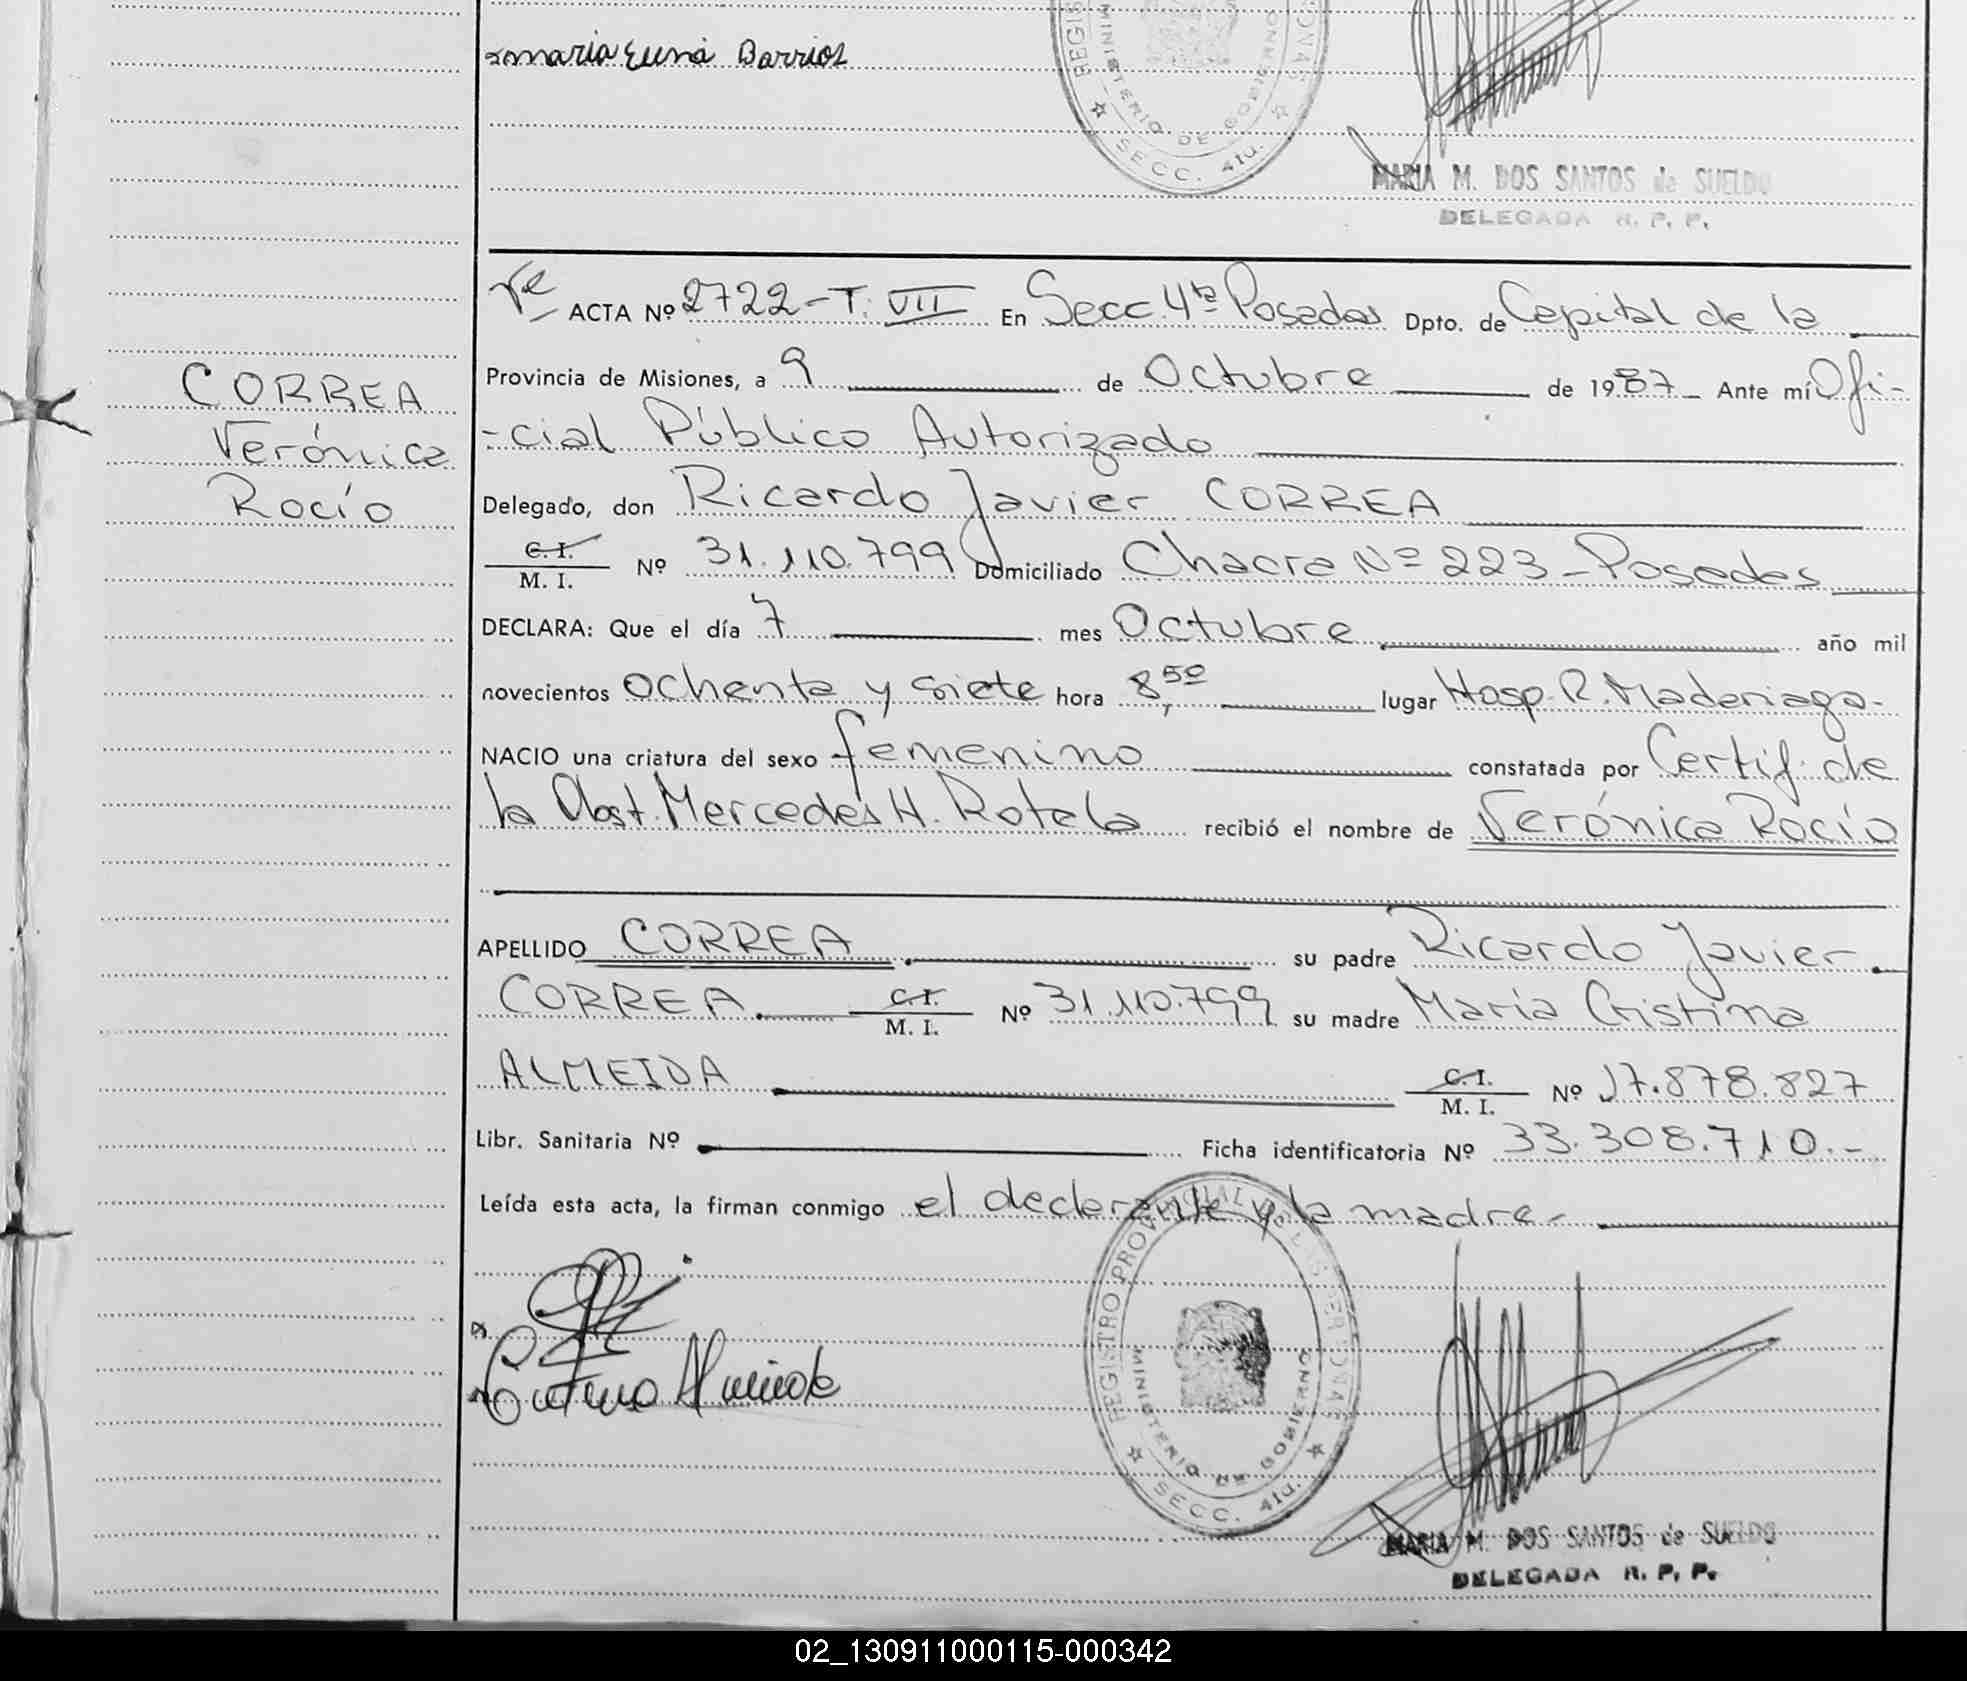 Maria Elena Barrios
REGISTRO PROVINCIAL DE LAS PERSONAS
MINISTERIO DE GOBIERNO
SECC. 4ta.
MARIA M. DOS SANTOS de SUELDO
DELEGADA R. P. P.
ACTA Nº 2722-T. VII En Secc. 4ta Posadas Dpto. de Capital de la
Provincia de Misiones, a 9 de Octubre de 1987 Ante mí Ofi-
-cial Público Autorizado
Delegado, don Ricardo Javier CORREA
C.I.
M. I. Nº 31.110.799 Domiciliado Chacra Nº 223-Posadas
DECLARA: Que el día 7 mes Octubre año mil
novecientos ochenta y siete hora 8,50 lugar Hosp. R. Madariaga-
NACIO una criatura del sexo femenino constatada por Certif. de
la Obst. Mercedes H. Rotela recibió el nombre de Verónica Rocío
APELLIDO CORREA su padre Ricardo Javier
CORREA C.I.
M. I. Nº 31.110.799 su madre María Cristina
ALMEIDA C.I.
M. I. Nº 17.878.827
Libr. Sanitaria Nº Ficha identificatoria Nº 33.308.710.-
Leída esta acta, la firman conmigo el declarante y la madre-
CORREA
Verónica
Rocío
REGISTRO PROVINCIAL DE LAS PERSONAS
MINISTERIO DE GOBIERNO
SECC. 4ta.
Cristina Almeida
MARIA M. DOS SANTOS de SUELDO
DELEGADA R. P. P.
02_130911000115-000342